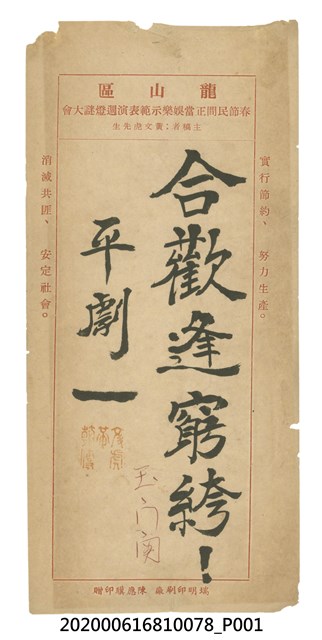 龍山區
春節民間正當娛樂示範表演週燈謎大會
主稿者：黃文虎先生
實行節約、努力生產。
合歡逢窮絝！
平劇一
玉门関
消滅共匪、安定社會。
瑞明印刷廠 陳應璸印贈
202000616810078_P001